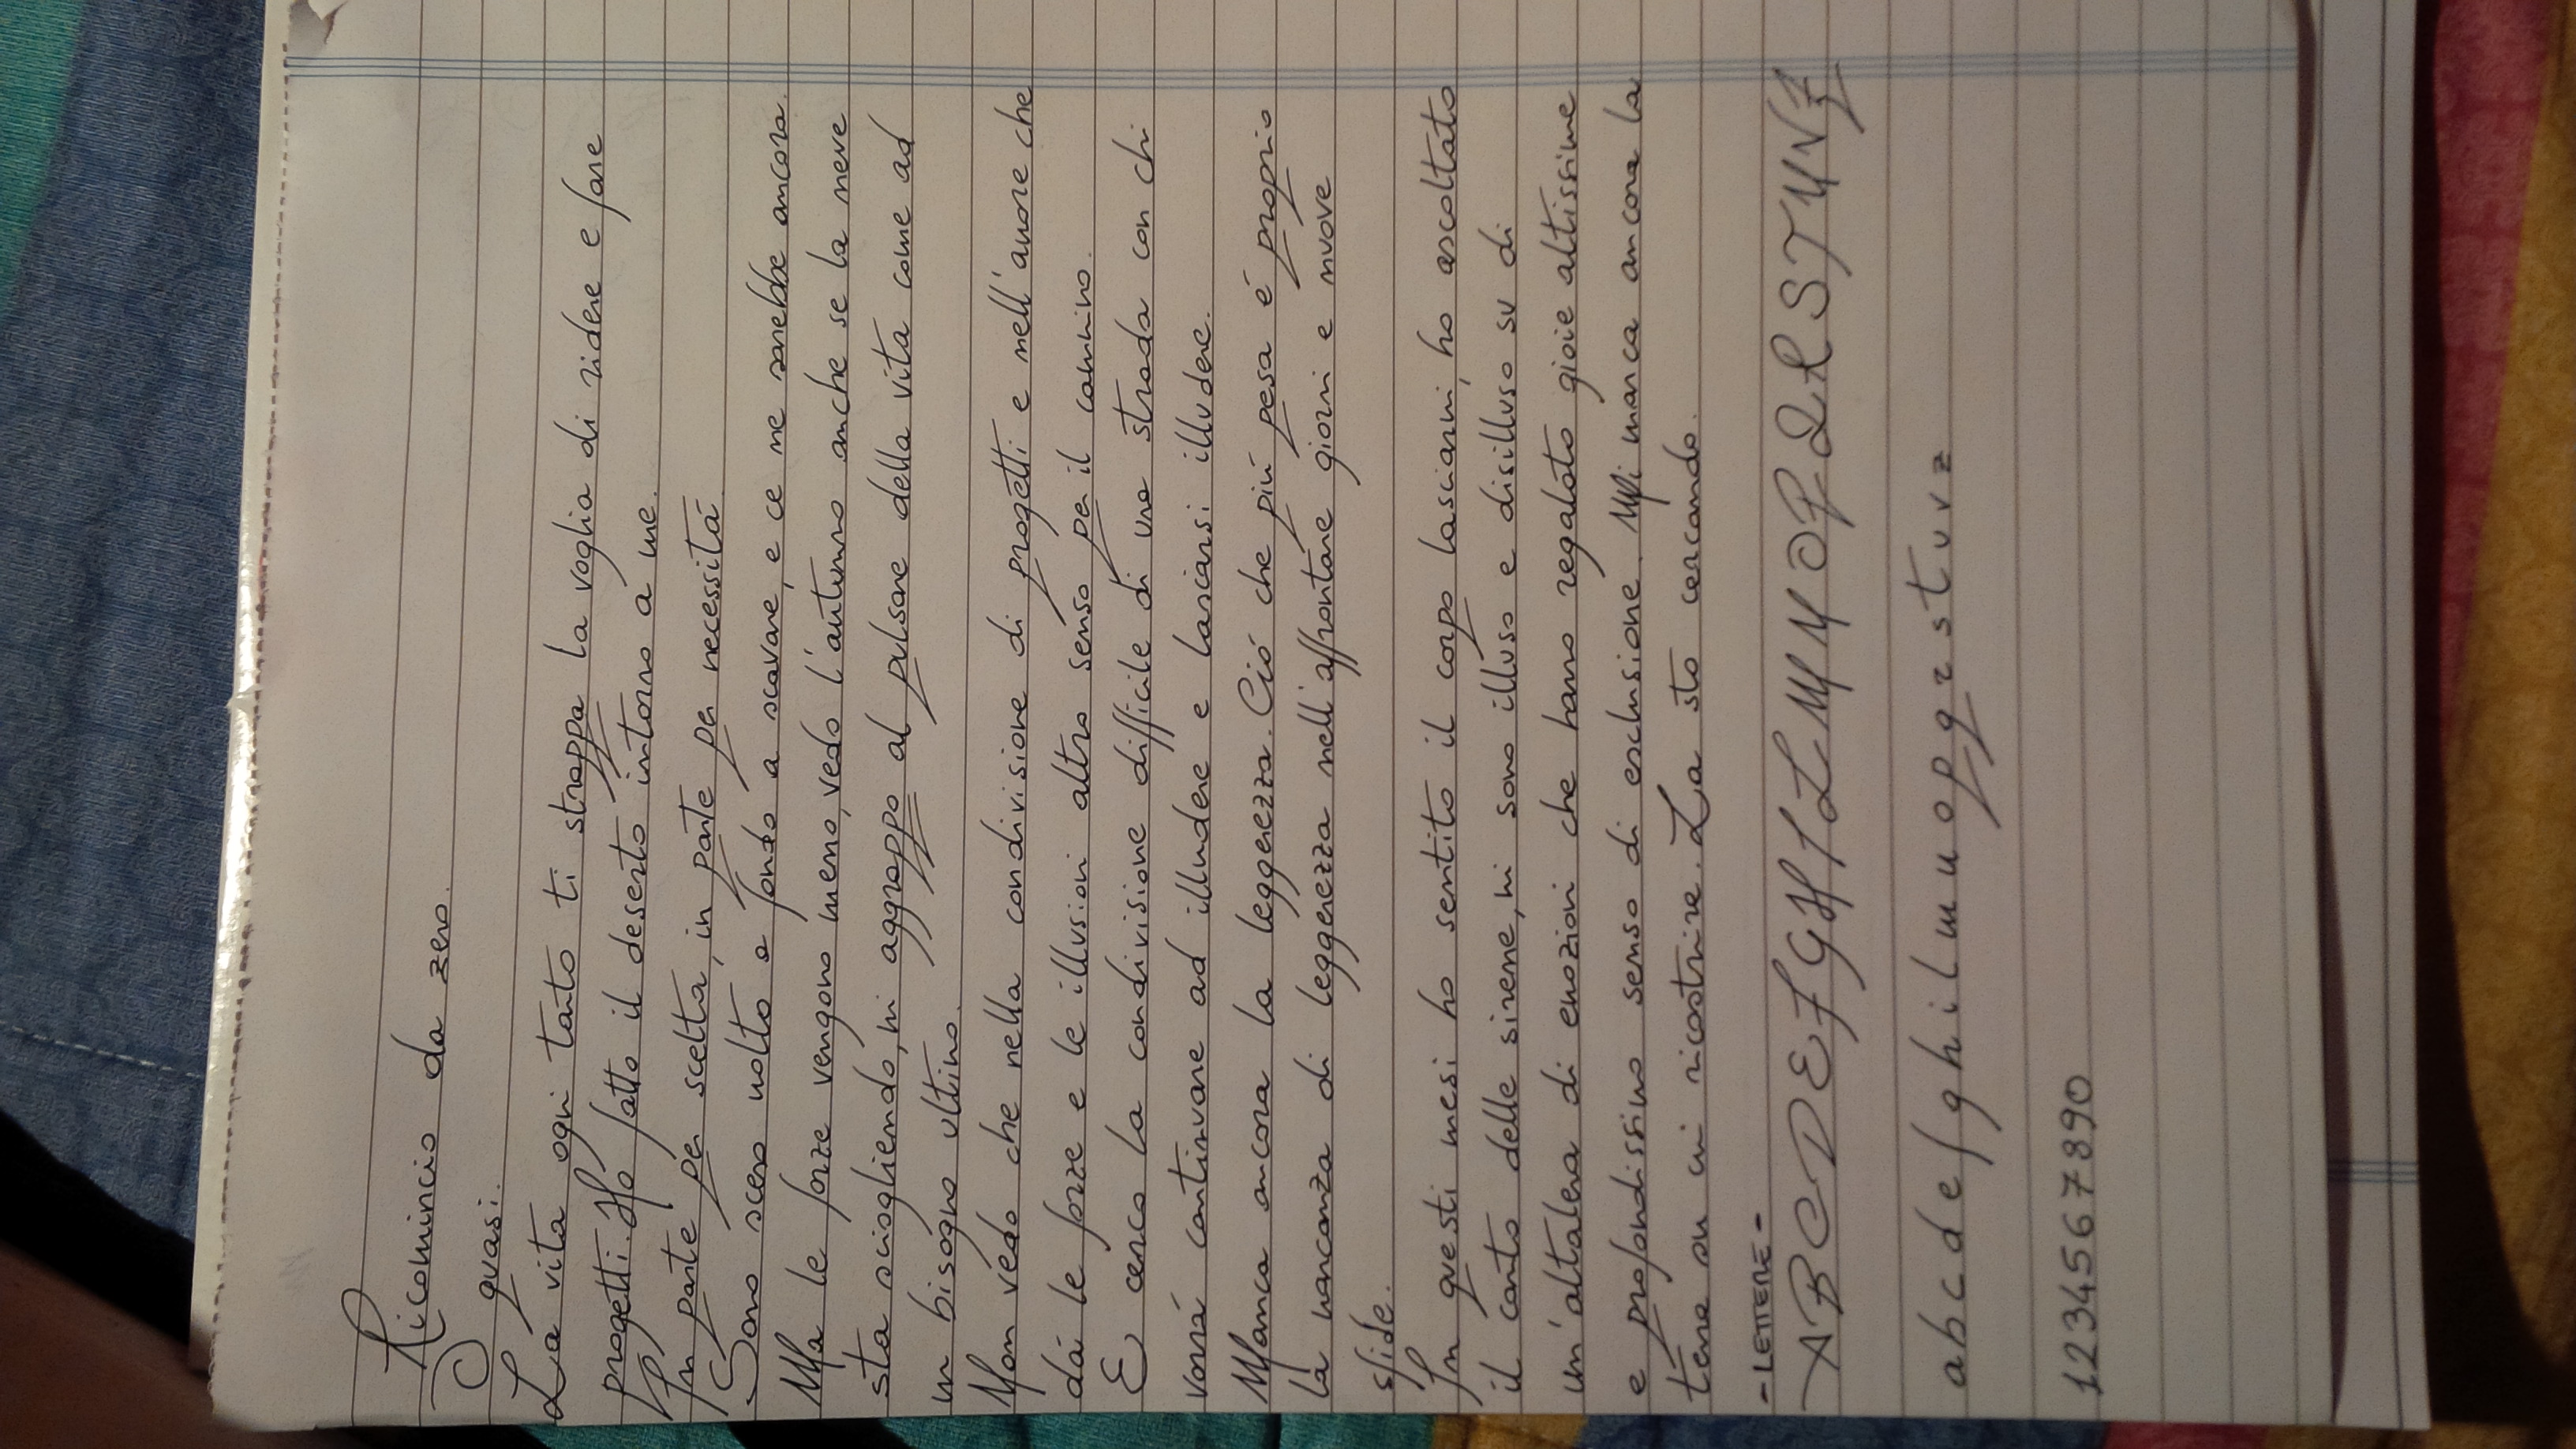 Ricomincio da zero.
O quasi.
La vita ogni tanto ti strappa la voglia di ridere e fare
progetti. Ho fatto il deserto intorno a me.
In parte per scelta, in parte per necessitá
Sono sceso molto a fondo a scavare, e ce ne sarebbe ancora.
Ma le forze vengono meno, vedo l'autunno anche se la neve
sta sciogliendo, mi aggrappo al pulsare della vita come ad
un bisogno ultimo.
Non vedo che nella condivisione di progetti e nell'amore che
dá le forze e le illusioni altro senso per il cammino.
E cerco la condivisione difficile di una strada con chi
vorrá continuare ad illudere e lasciarsi illudere.
Manca ancora la leggerezza. Ció che piú pesa é proprio
la mancanza di leggerezza nell'affrontare giorni e nuove
sfide.
In questi mesi ho sentito il corpo lasciarmi, ho ascoltato
il canto delle sirene, mi sono illuso e disilluso su di
un'altalena di emozioni che hanno regalato gioie altissime
e profondissimo senso di esclusione. Mi manca ancora la
terra su cui ricostruire. La sto cercando.
- LETTERE -
A B C D E F G H I L M N O P Q R S T U V Z
a b c d e f g h i l m n o p q r s t u v z
1234567890